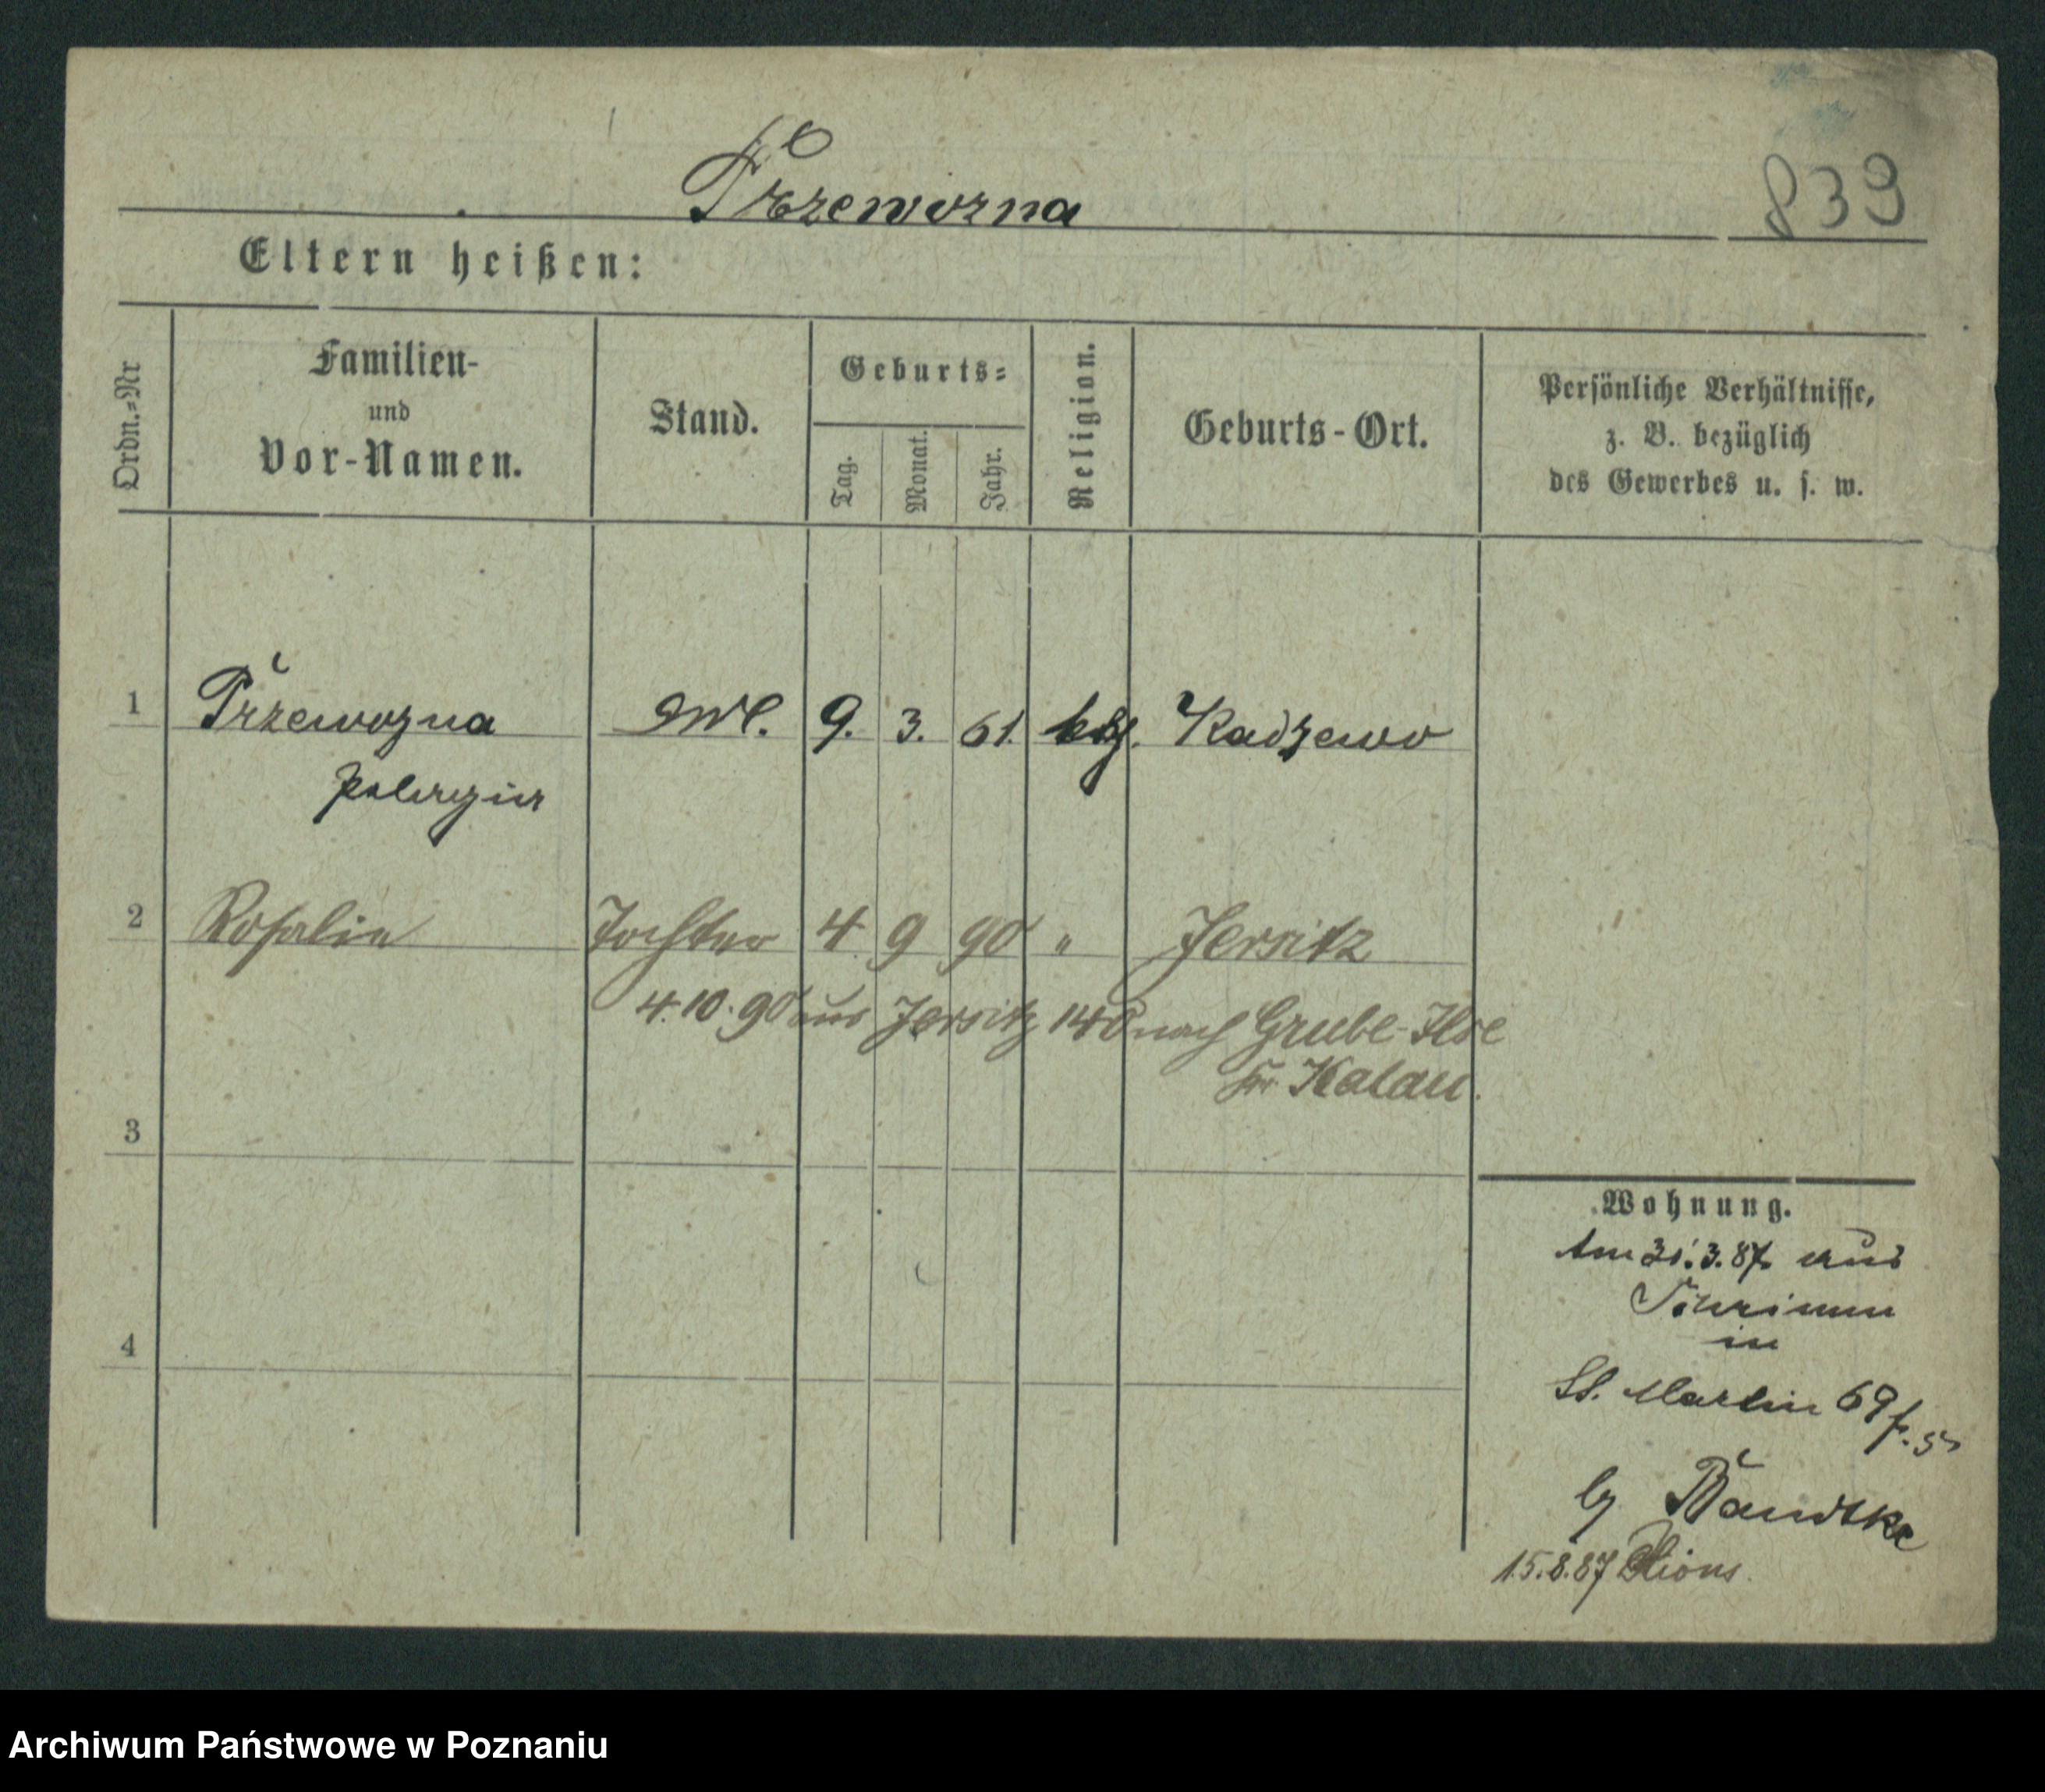 Przewozna
839
Eltern heißen:
Ordn.=Nr
Familien-
und
Vor-Namen.
Stand.
Geburts=
Tag.
Monat.
Jahr.
Religion.
Geburts-Ort.
Persönliche Verhältnisse,
z. B. bezüglich
des Gewerbes u. s. w.
1 Przewozna 9. 3. 61. kth. Radzewo
Pelagia
2 Rosalie Tochter 4 9 90 " Jersitz
4.10.90 aus Jersitz 140 nach Grube-Ilse
Kr Kalau.
3
4
Wohnung.
Am 31.3.87 aus
Schrimm
in
St. Martin 69
Bandtke
15.8.87 Xions.
Archiwum Państwowe w Poznaniu